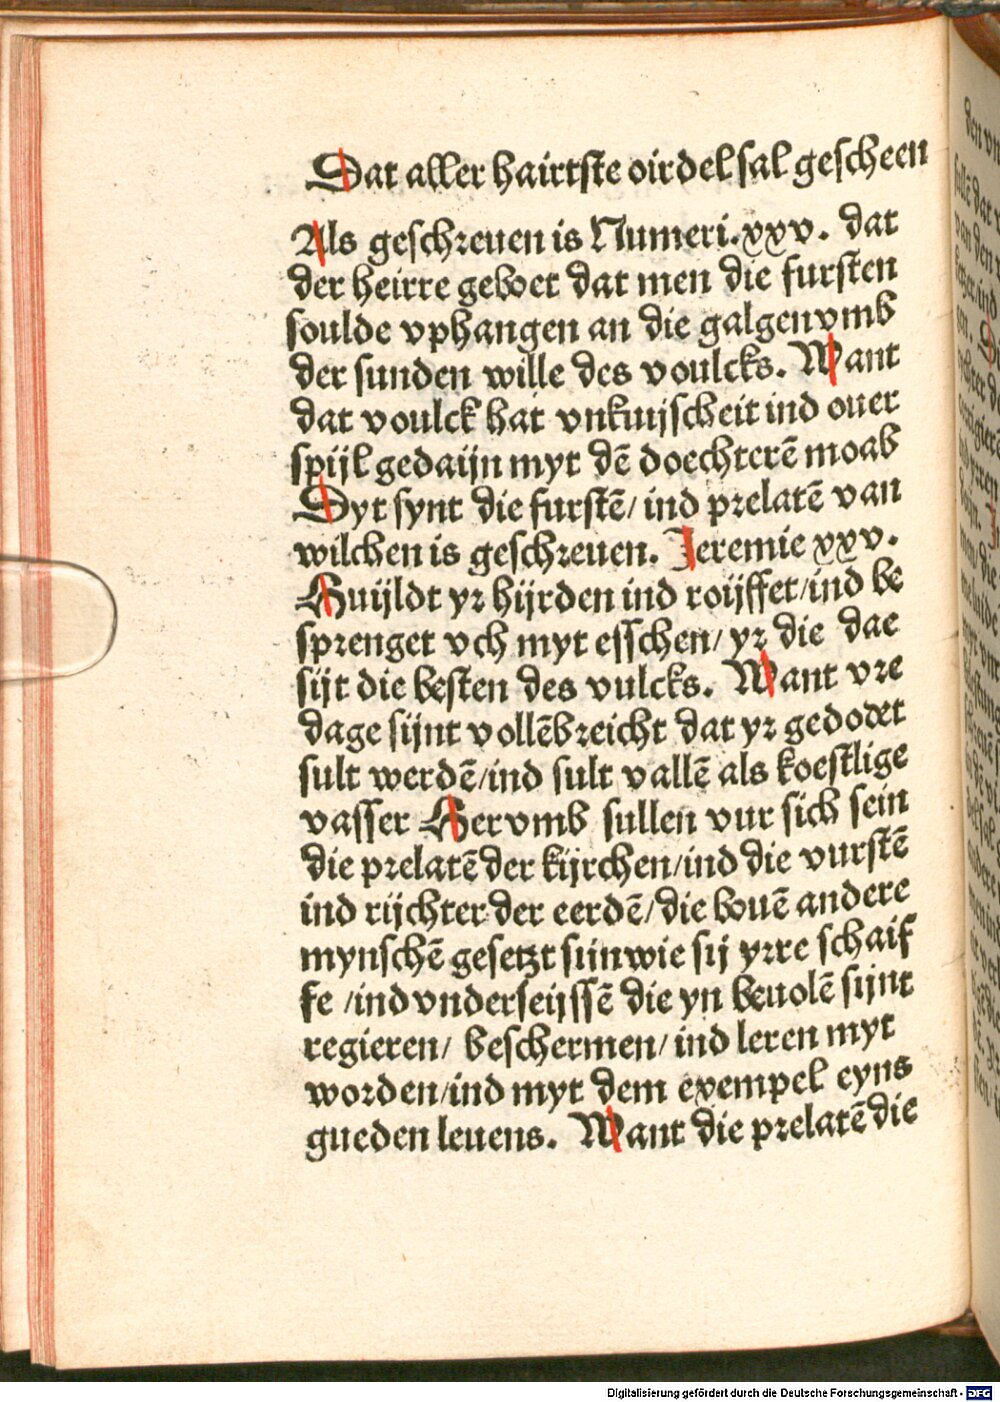 Dat aller hairtste oirdel sal gescheen
Als geschreuen is Numeri. xxv. dat
der heirre geboet dat men die fursten
soulde vphangen an die galgen vmb
der sunden wille des voulcks. Want
dat voulck hat vnkuijscheit ind ouer
spijl gedaijn myt dē doechterē moab
Dyt synt die furstē/ ind prelatē van
wilchen is geschreuen. Jeremie xxv.
Huijldt yr hijrden ind roijffet/ ind be
sprenget vch myt esschen/ yr die dae
sijt die besten des vulcks. Want vre
dage sijnt vollēbreicht dat yr gedodet
sult werdē/ ind sult vallē als koestlige
vasser Hervmb sullen vur sich sein
die prelatē der kijrchen/ ind die vurstē
ind rijchter der eerdē/ die bouē andere
mynschē gesetzt sijn wie sij yrre schaif
fe /ind vnderseijssē die yn beuolē sijnt
regieren/ beschermen/ ind leren myt
worden/ ind myt dem exempel eyns
gueden leuens. Want die prelatē die
Digitalisierung gefördert durch die Deutsche Forschungsgemeinschaft - DFG